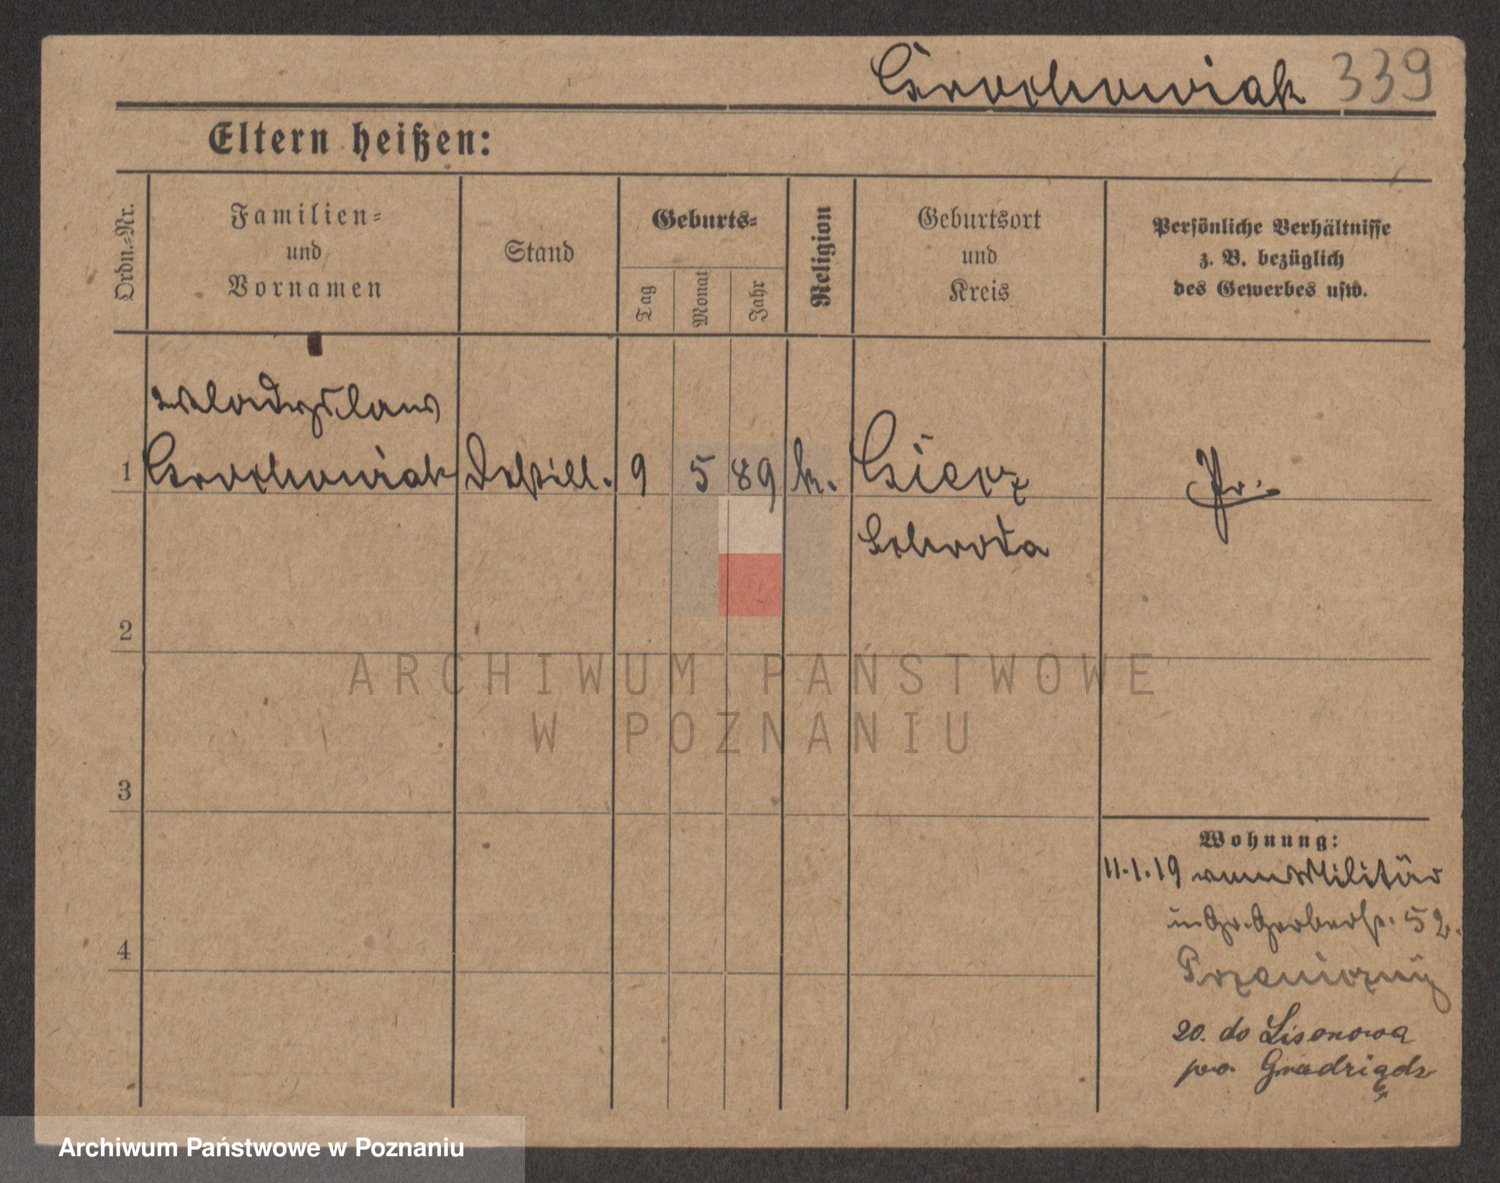 Grochowiak 339
Eltern heißen:
Ordn.=Nr.
Familien=
und
Vornamen
Stand
Geburts=
Tag
Monat
Jahr
Religion
Geburtsort
und
Kreis
Persönliche Verhältnisse
z. B. bezüglich
des Gewerbes usw.
Wladyslaus
1 Grochowiak Destill. 9 5 89 k. Giecz Pr.
Schroda
2
3
4
Wohnung:
11.1.19 vom Militär
in Gr. Gerberstr. 52.
20. do Lisonowa
pow Grudziądz
ARCHIWUM PAŃSTWOWE
W POZNANIU
Archiwum Państwowe w Poznaniu